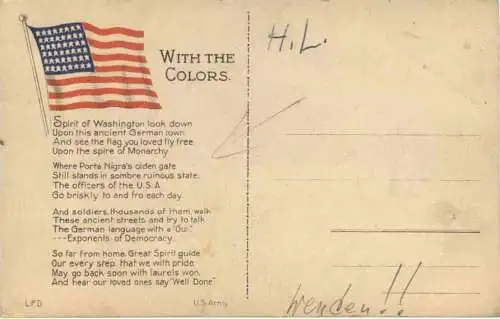 WITH THE
COLORS.
Spirit of Washington look down
Upon this ancient German town
And see the flag you loved fly free
Upon the spire of Monarchy
Where Porta Nigra's olden gate
Still stands in sombre ruinous state.
The officers of the U.S.A
Go briskly to and fro each day.
And soldiers, thousands of them, walk
These ancient streets and try to talk
The German language with a "Oui"
---Exponents of Democracy.
So far from home. Great Spirit guide
Our every step, that we with pride
May go back soon with laurels won,
And hear our loved ones say "Well Done"
L.F.D
U.S. Army
H.L.
wenden!!